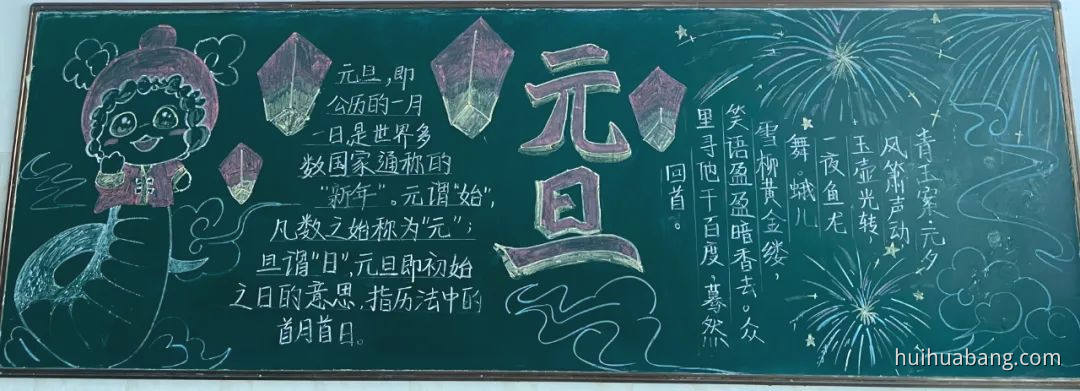 元旦,即
公历的一月
一日,是世界多
数国家通称的
"新年"。元谓"始",
凡数之始称为"元";
旦谓"日",元旦即初始
之日的意思,指历法中的
首月首日。
元旦
青玉案·元夕
风箫声动
玉壶光转,
夜鱼龙
舞。蛾儿
雪柳黄金缕,
笑语盈盈暗香去。众
里寻他千百度,蓦然
回首。
huihuabang.com